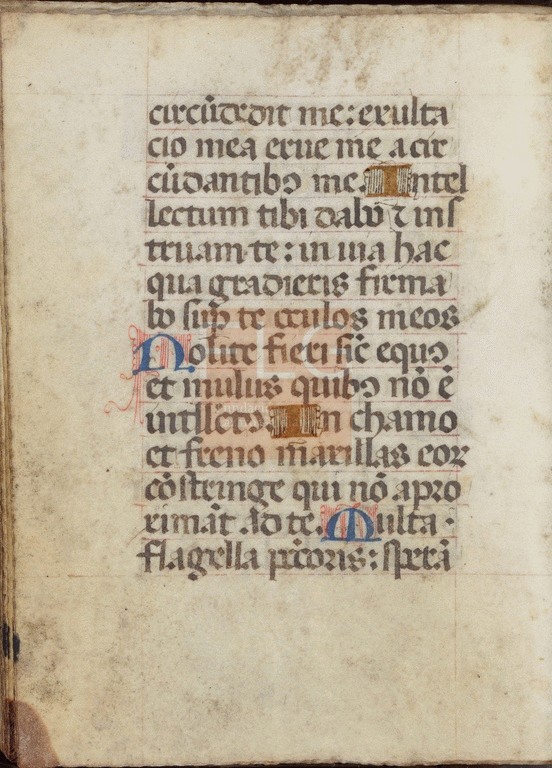 circūdedit me: exulta
cio mea erue me a cir
cūdantibꝯ me. Intel
lectum tibi dabo ⁊ ins
truam te: in uia hac
qua gradieris firma
bo sup̄ te oculos meos
Nolite fieri sic̄ equꝯ
et mulus quibꝯ nō ē
intll̄ctꝯ. In chamo
et freno m̄axillas eoꝝ
cōstringe qui nō apro
ximāt ad te. Multa
flagella pc̄coris: sperā